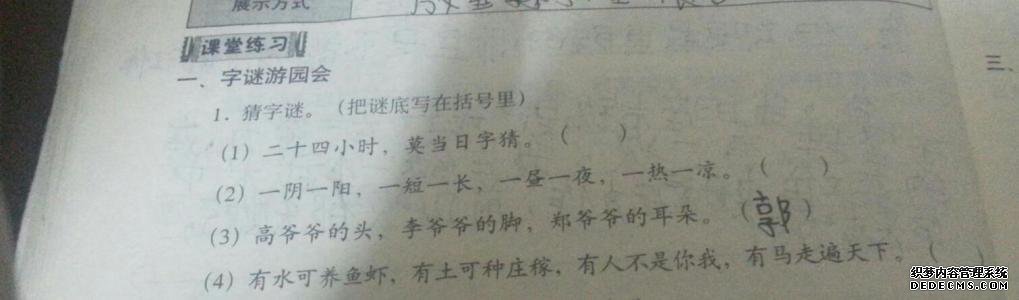 展示方式
课堂练习
一、字谜游园会
三、
1. 猜字谜。（把谜底写在括号里）
(1) 二十四小时，莫当日字猜。（ ）
(2) 一阴一阳，一短一长，一昼一夜，一热一凉。（ ）
(3) 高爷爷的头，李爷爷的脚，郑爷爷的耳朵。（郭）
(4) 有水可养鱼虾，有土可种庄稼，有人不是你我，有马走遍天下。（
织梦内容管理系统
DEDECMS.COM